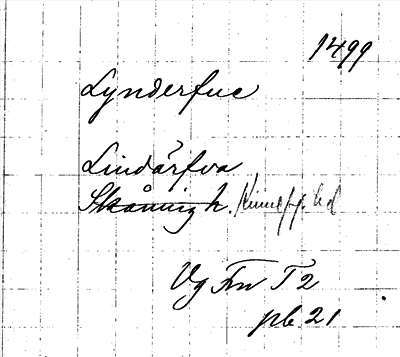 1499
Lynderfue
Lindärfva
Skånings h. Kinnef. hd
Vg Frn T 2
pb 21